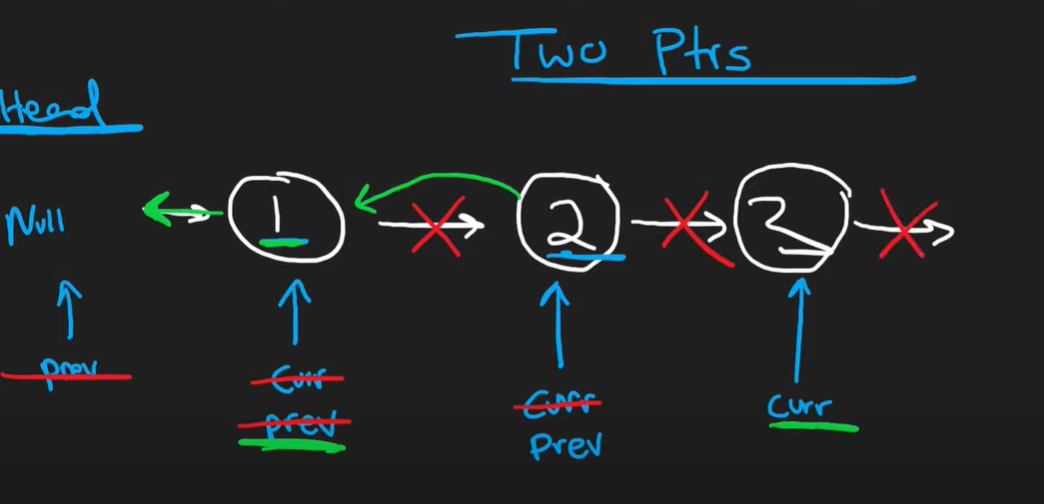 Two Ptrs
Head
Null 1 2 3
prev Curr Curr curr
prev Prev